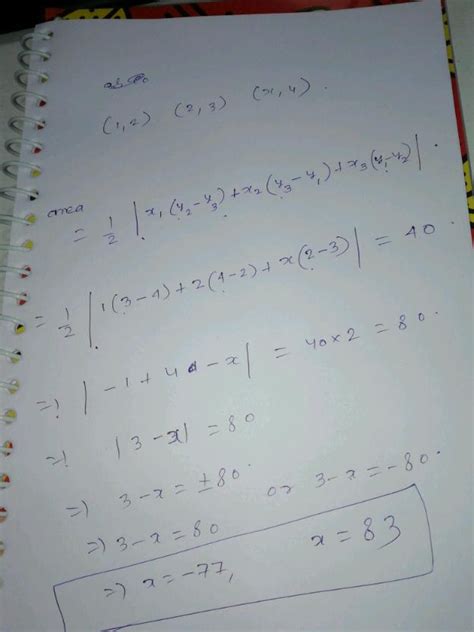 (1,2) (2,3) (x,4).
area
= 1/2 | x₁(y₂-y₃)+x₂(y₃-y₁)+x₃(y₁-y₂) |.
= 1/2 | 1(3-4)+2(4-2)+x(2-3) | = 40.
=> | -1+4-x | = 40×2 = 80.
=> |3-x| = 80
=> 3-x = ±80.
=> 3-x = 80 or 3-x = -80.
=> x = -77, x = 83